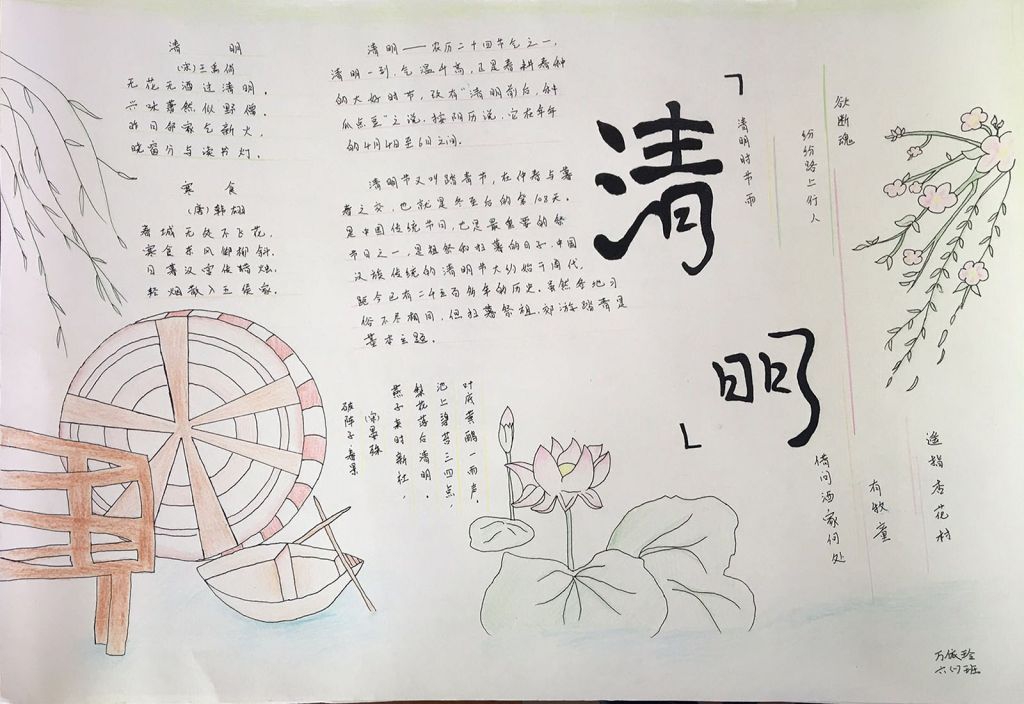 清 明
(宋)王禹偁
无花无酒过清明,
兴味萧然似野僧。
昨日邻家乞新火,
晓窗分与读书灯。
寒 食
(唐)韩翃
春城无处不飞花,
寒食东风御柳斜。
日暮汉宫传蜡烛,
轻烟散入五侯家。
清明——农历二十四节气之一,
清明一到,气温升高,正是春耕春种
的大好时节,故有“清明前后,种
瓜点豆”之说。按阴历说,它在每年
的4月4日至6日之间。
清明节又叫踏青节,在仲春与暮
春之交,也就是冬至后的第108天。
是中国传统节日,也是最重要的祭
节日之一,是祖祭和扫墓的日子。中国
汉族传统的清明节大约始于周代,
距今已有二千五百多年的历史。虽然各地习
俗不尽相同,但扫墓祭祖、郊游踏青是
基本主题。
「清明」
清明时节雨
纷纷路上行人
欲断魂
借问酒家何处
有牧童
遥指杏花村
破阵子·春景
(宋)晏殊
燕子来时新社,
梨花落后清明。
池上碧苔三四点,
叶底黄鹂一两声。